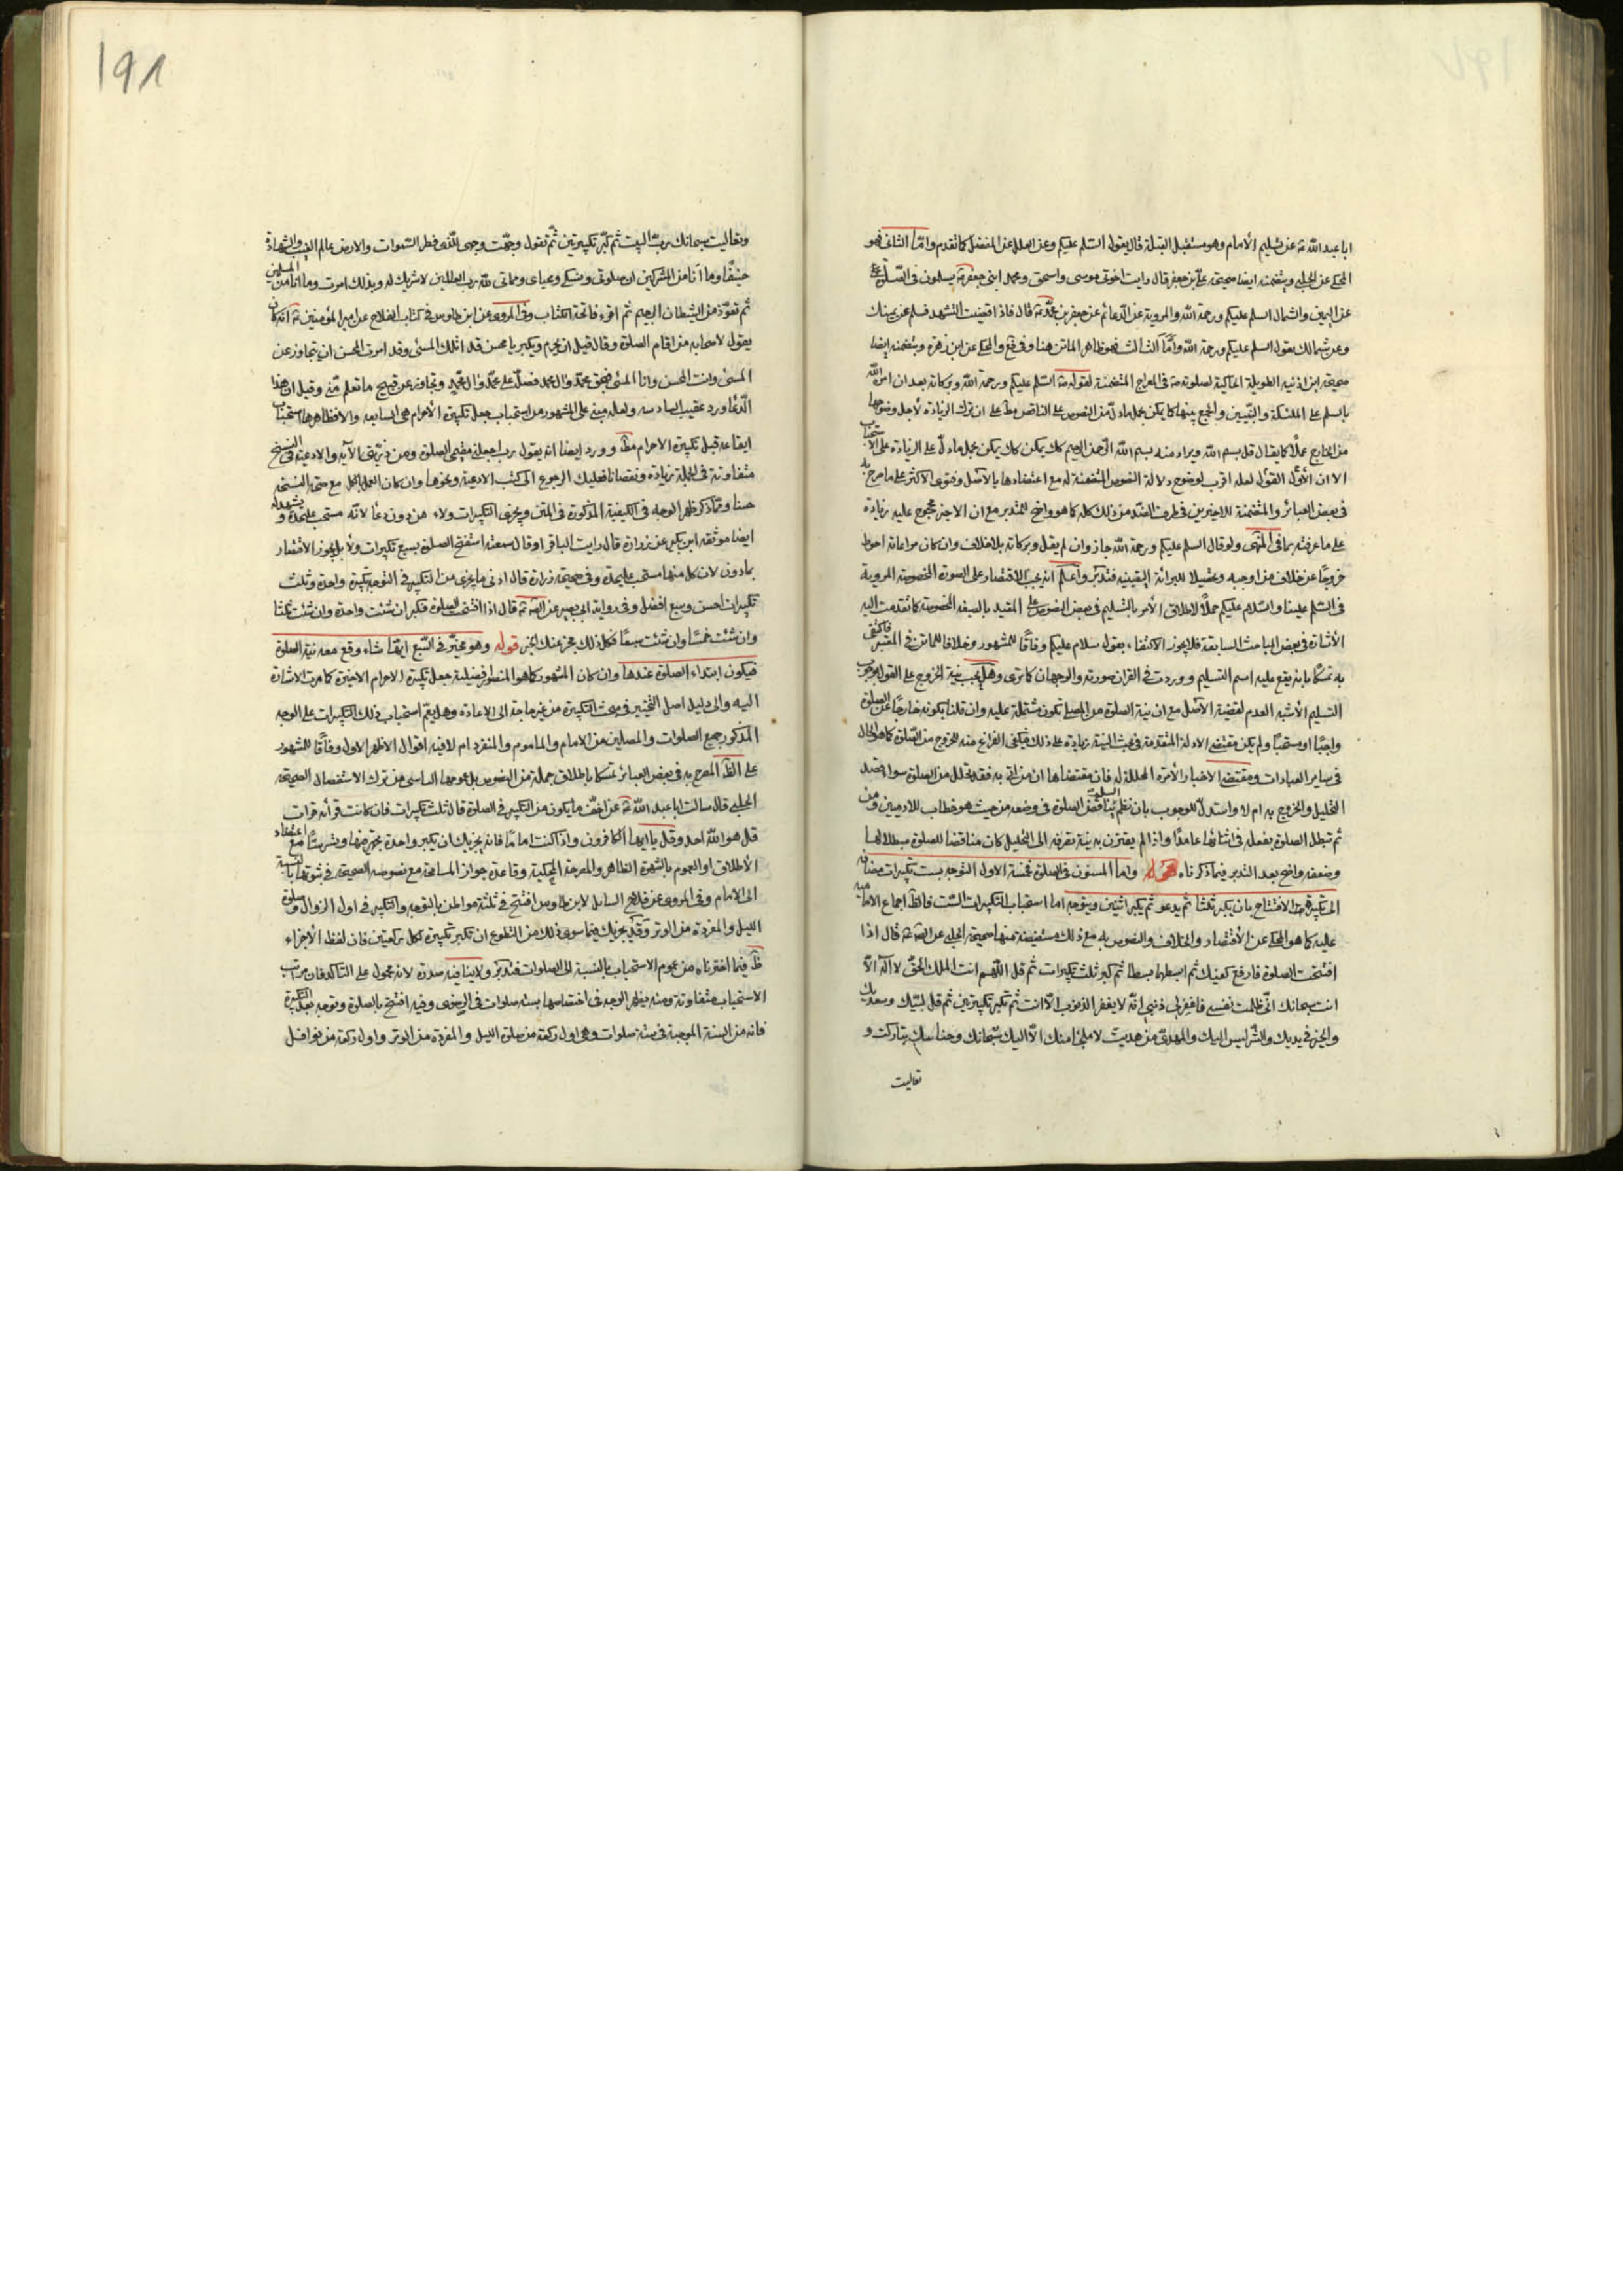 ابا عبد الله ع عن تسليم الأمام وهو مستقبل القبلة قال يقول السلم عليكم وعن العلل عن المفضل كما تقدم وامّا الثانى فهو
المحكى عن الحلبى ويتضمنه ايضا صحيحة على بن جعفر قال رايت اخوتى موسى واسحق ومحمد ابنى جعفر ع يسلمون فى الصلوة
عن اليمين والشمال السلم عليكم ورحمة الله والمروية عن الدعائم عن جعفر بن محمد ع قال فاذا قضيت التشهد فسلم عن يمينك
وعن شمالك بقول السلم عليكم ورحمة الله وأمّا الثالث فهو ظاهر الماتن هنا وفى فع والمحكى عن ابن زهرة ويتضمنه ايضا
صحيحة ابن اذنيه الطويلة الحاكية لصلوته ص فى المعراج المتضمنة لقوله ص السّلم عليكم ورحمة الله وبركاته بعد ان امر الله
بالسلم على الملئكة والنبيين والجمع بينها كما يكن بحمل ما دلّ من النصوص على الناقص على ان ترك الزيادة لاجل وضوحها
من الخارج عملًا كما يقال قل بسم الله ويراد منه بسم الله الرّحمن الرحيم كك يمكن بحمل ما دلّ على الزيادة على الاستحباب
الا ان الأوّل القول لعله اقرب لوضوح دلالة النصوص المتضمنة له مع اعتضادها بالأصل وفتوى الاكثر على ما صرح به
فى بعض العبائر والمتضمنة للاخيرين فى طرف الضد من ذلك كله كما هو واضح للمتدبر مع ان الاخير محجوج عليه زيادة
على ما عرفته بما فى المنتهى ولو قال السلم عليكم ورحمة الله جاز وان لم يقل وبركاته بلا خلاف وان كان مراعاته احوط
خروجًا عن خلاف من اوجبه وتحصيلا للبرائة اليقينية فتدبّر واعلم انه يجب الاقتصار على الصورة المخصوصة المروية
فى السّلم علينا والسّلام عليكم حملًا لاطلاق الأمر بالتسليم فى بعض النصوص على المقيد بالصيغة المخصوصة كما تقدمت اليه
الأشارة فى بعض المباحث السابقة فلا يجوز الاكتفاء بقول سلام عليكم وفاقًا للمشهور وخلافا للماتن فى المعتبر فاكتفى
به تمسكًا بانه يقع عليه اسم التسليم ووردت فى القران صورته والوجهان كما ترى وهل يجب نية الخروج على القول بوجوب
التسليم الأشبه العدم لقضية الأصل مع ان نية الصلوة من المصلى تكون مشتملة عليه وان قلنا بكونه خارجًا عن الصلوة
واجبًا او مستحبًا ولم يكن مقتضى الادلة المتقدمة فى بحث النية زيادة على ذلك فيكفى الفراغ عنه للخروج من الصّلوة كما هو الحال
فى ساير العبادات ومقتضى الاخبار الأمرة المحللة له فان مقتضاها ان من اتى به فقد تحلل من الصلوة سواء قصد
التحليل والخروج به ام لا واستدلّ للوجوب بان نظم السلم يناقض الصلوة فى وضعه من حيث هو خطاب للادميين ومن
ثم تبطل الصلوة بفعله فى اثنائها عامدًا واذا لم يقترن به نية تصرفه الى التحليل كان مناقضا للصلوة مبطلا لها
وضعفه واضح بعد التدبر فيما ذكرناه قوله واما المسنون فى الصلوة فخمسة الاول التوجه بست تكبيرات مضافة
الى تكبيرة الافتتاح بان يكبر ثلثا ثم يدعو ثم يكبر اثنتين ويتوجه اما استحباب التكبيرات الستّ فالظ اجماع الامامية
عليه كما هو المحكى عن الأقتصار والخلاف والنصوص به مع ذلك مستفيضة منها صحيحة الحلبى عن الصّ ع قال اذا
افتتحت الصلوة فارفع كفيك ثم ابسطهما بسطا ثم كبر ثلث تكبيرات ثم قل اللهم انت الملك الحق لا اله الّا
انت سبحانك انّى ظلمت نفسى فاغفر لى ذنبى انّه لا يغفر الذنوب الّا انت ثم تكبر تكبيرتين ثم قل لبّيك وسعديك
والخير فى يديك والشّر ليس اليك والمهدىّ من هديت لا ملجأ منك الّا اليك سبحانك وحنانيك تباركت و
تعاليت
١٩٨
وتعاليت سبحانك ربّ البيت ثم كبّر تكبيرتين ثم تقول وجّهت وجهى للّذى فطر السّموات والارض عالم الغيب والشهادة
حنيفًا وما أنا من المشركين ان صلوتى ونسكى ومحياى ومماتى للّه رب العالمين لا شريك له وبذلك امرت وما انا من المسلمين
ثم تعوّذ من الشيطان الرجيم ثم اقرء فاتحة الكتاب وفى المروى عن ابن طاوس فى كتاب الفلاح عن امير المؤمنين ع انه كان
يقول لاصحابه من اقام الصلوة وقال قبل ان يحرم ويكبر يا محسن قد اتاك المسئ وقد امرت المحسن ان يتجاوز عن
المسئ وانت المحسن وانا المسئ فبحق محمّد وال محمد فصلّ على محمّد وال محمّد وتجاوز عن قبيح ما تعلم منّى وقيل ان هذا
الدّعاء ورد عقيب السادسه ولعله مبنى على المشهور من استحباب جعل تكبيرة الأحرام هى السابعه والا فظاهرها استحباب
ايقاعه قبل تكبيرة الاحرام مط وورد ايضا انه يقول رب اجعلنى مقيم الصلوة ومن ذريّتى الآية والادعية فى النسخ
متفاوتة فى الجملة زيادة ونقصانا فعليك الرجوع الى كتب الادعية ونحوها وان كان العمل بالكل مع صحة النسخة
حسنا وممّا ذكر ظهر الوجه فى الكيفية المذكورة فى المتن ويجزى التكبيرات ولاء من دون دعا لانّه مستحب عليحدة ويشهد له
ايضا موثقه ابن بكير عن زرارة قال رايت الباقر او قال سمعته استفتح الصلوة بسبع تكبيرات ولاء بل يجوز الأقتصار
بما دون لان كل منها مستحب عليحدة وفى صحيحة زرارة قال ادنى ما يجزى من التكبير فى التوجه تكبيرة واحدة وثلث
تكبيرات احسن وسبع افضل وفى رواية ابى بصير عن الصّ ع قال اذا افتتحت الصلوة فكبر ان شئت واحدة وان شئت ثلثا
وان شئت خمسًا وان شئت سبعًا فكل ذلك مجز عنك الخبر قوله وهو مخيّر فى السّبع ايّها شاء وقع معه نية الصلوة
فيكون ابتداء الصلوة عندها وان كان المشهور كما هو المنظور فضيلية جعل تكبيرة الاحرام الاخيرة كما مرت الاشارة
اليه والى دليل اصل التخيير فى بحث التكبيرة من غير حاجة الى الاعادة وهل يعم استحباب ذلك التكبيرات على الوجه
المذكور جميع الصلوات والمصلين من الامام والماموم والمنفرد ام لا فيه اقوال الاظهر الاول وفاقًا للمشهور
على الظّ المصرح به فى بعض العبائر تمسكا باطلاق جملة من النصوص بل عمومها الناشى من ترك الاستفصال الصحيحة
الحلبى قال سالت ابا عبد الله ع عن اخفّ ما يكون من التكبير فى الصلوة قال ثلث تكبيرات فان كانت قرأته قرات
قل هو اللّه احد وقل يا ايها الكافرون واذا كنت امامًا فانه يجزيك ان تكبر واحدة تجهر فيها وتسر ستًا مع اعتضاد
الأطلاق او العموم بالشهرة الظاهر والمصرحة المحكية وقاعدة جواز المسامحة مع نصوصه الصحيحة فى ثبوتها بالنسبة
الى الامام وفى المروى عن فلاح السايل لابن طاوس افتتح فى ثلثة مواطن بالتوجه والتكبير فى اول الزوال وصلوة
الليل والمفردة من الوتر وقد يجزيك فيما سوى ذلك من التطوع ان تكبر تكبيرة لكل ركعتين فان لفظ الأجزاء
ظّ فيما اخترناه من عموم الاستحباب بالنسبة الى الصلوات فتدبّر ولا ينافيه صدره لانه محمول على التاكد فان مرتب
الاستحباب متفاوتة ومنه يظهر الوجه فى اختصاصها بسته صلوات فى الرضوى وفيه افتتح بالصلوة وتوجه بعد التكبيرة
فانه من السنة الموجبة فى ستة صلوات وهى اول ركعة من صلوة الليل والمفردة من الوتر واول ركعة من نوافل